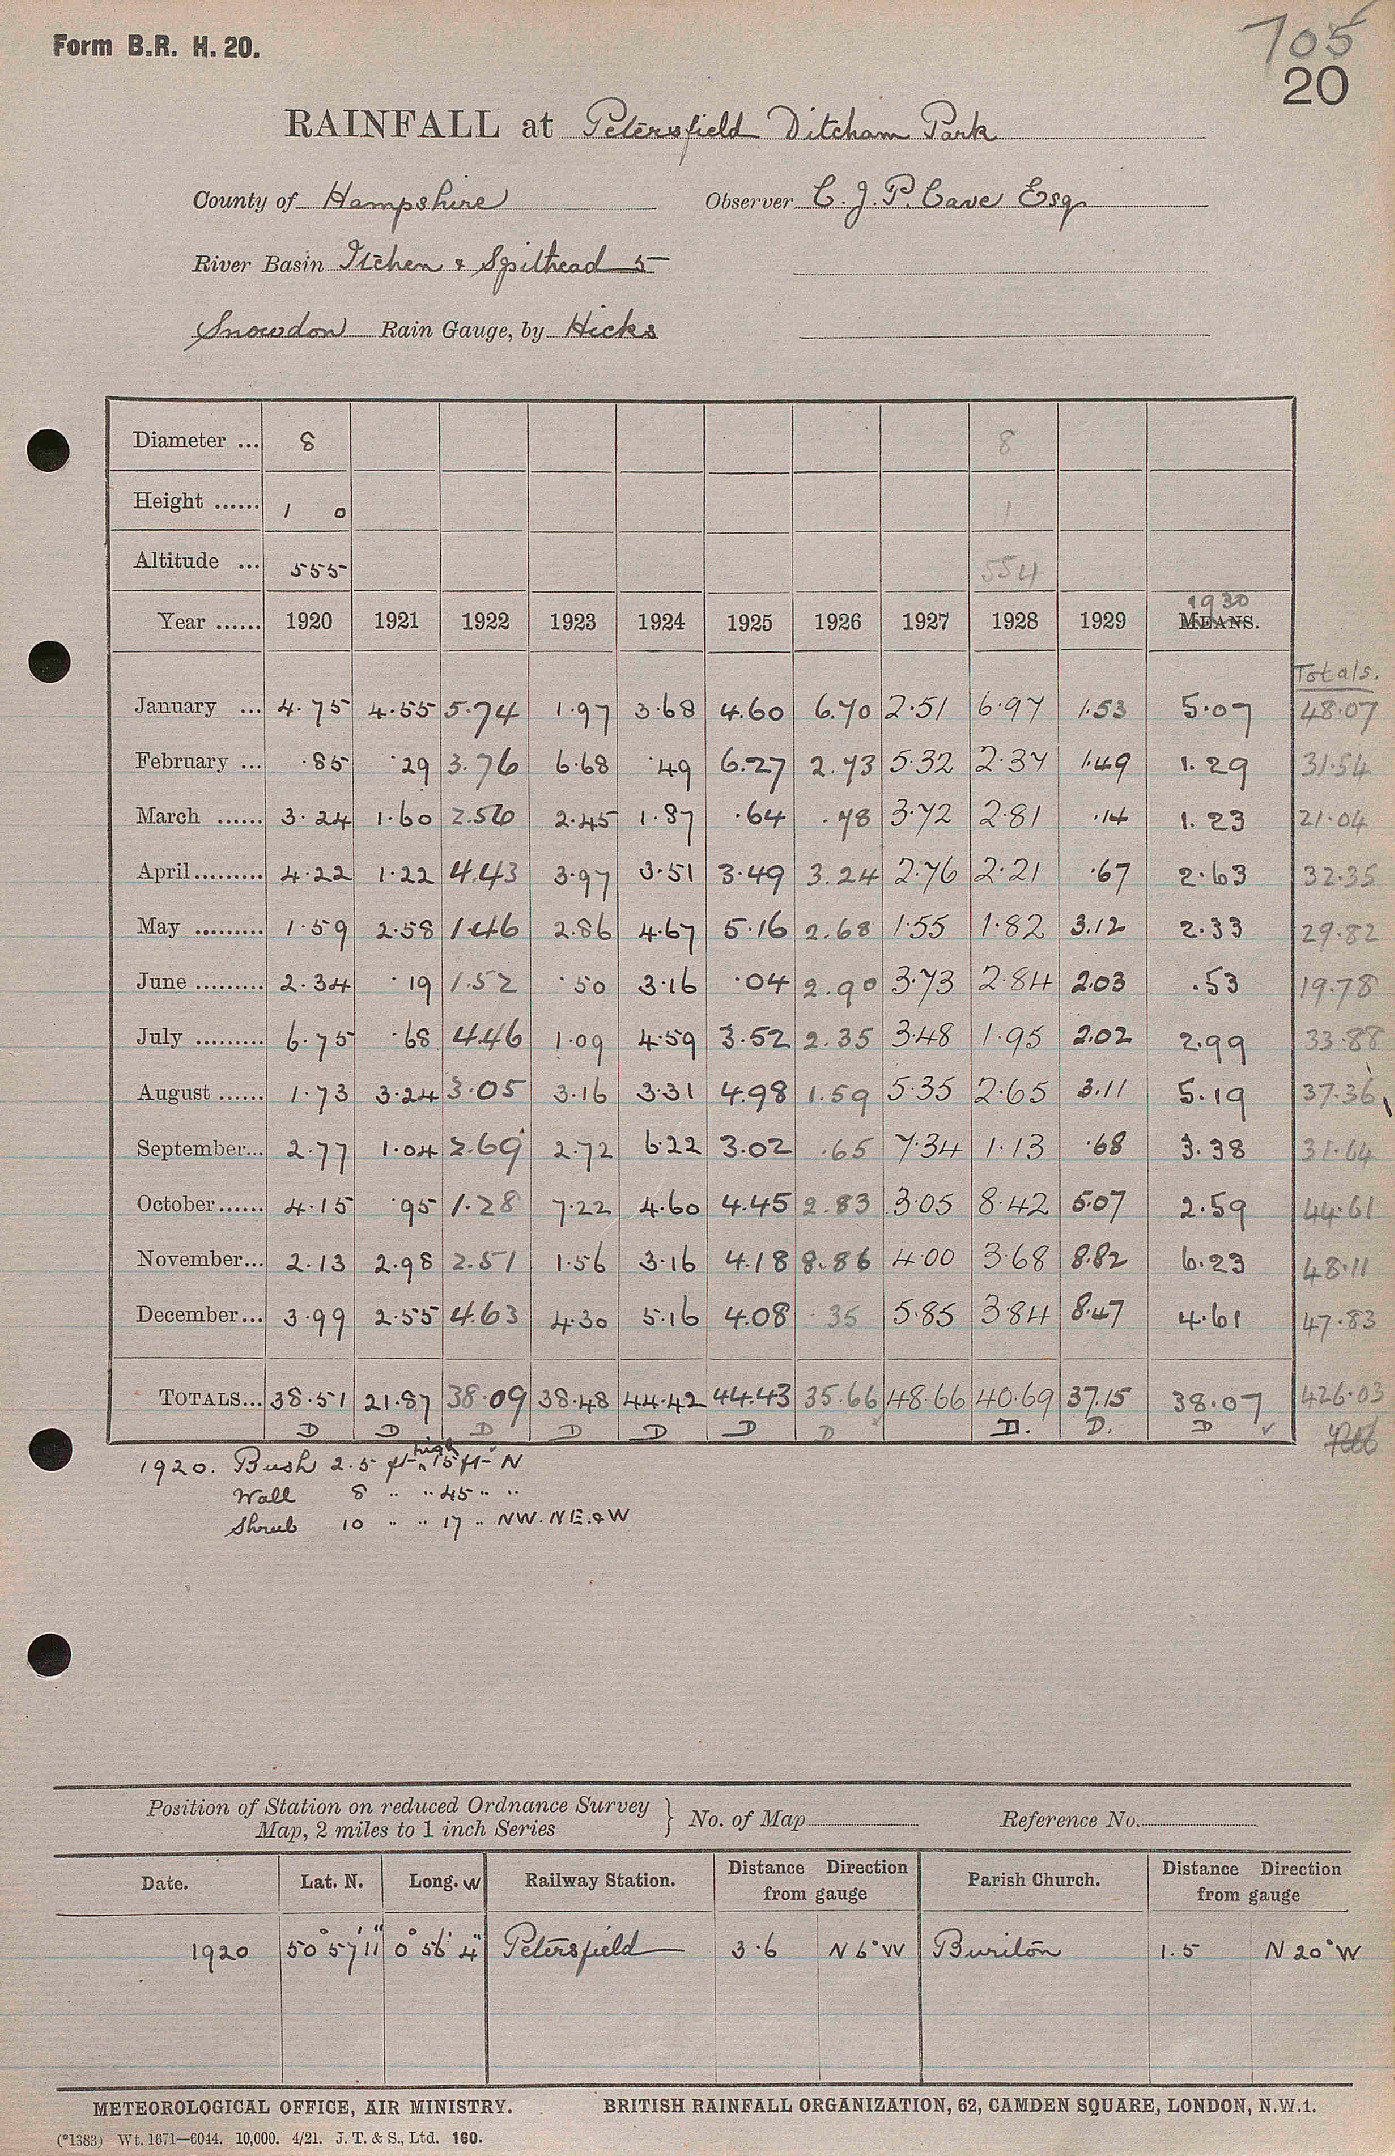 Form B.R. H. 20.
705
20
RAINFALL at Petersfield Ditcham Park
County of Hampshire Observer C. J. P. Cave Esq
River Basin Itchen & Spithead 5
Snowdon Rain Gauge, by Hicks
Diameter ... 8 8
Height ...... 1 0 1
Altitude ... 555 554
Year ...... 1920 1921 1922 1923 1924 1925 1926 1927 1928 1929 1930 MEANS.
Totals.
January ... 4.75 4.55 5.74 1.97 3.68 4.60 6.70 2.51 6.97 1.53 5.07 48.07
February ... .85 .29 3.76 6.68 .49 6.27 2.73 5.32 2.37 1.49 1.29 31.54
March ...... 3.24 1.60 2.56 2.45 1.87 .64 .78 3.72 2.81 .14 1.23 21.04
April......... 4.22 1.22 4.43 3.97 3.51 3.49 3.24 2.76 2.21 .67 2.63 32.35
May ......... 1.59 2.58 1.46 2.86 4.67 5.16 2.68 1.55 1.82 3.12 2.33 29.82
June ......... 2.34 .19 1.52 .50 3.16 .04 2.90 3.73 2.84 2.03 .53 19.78
July ......... 6.75 .68 4.46 1.09 4.59 3.52 2.35 3.48 1.95 2.02 2.99 33.88
August ...... 1.73 3.24 3.05 3.16 3.31 4.98 1.59 5.35 2.65 3.11 5.19 37.36
September... 2.77 1.04 2.69 2.72 6.22 3.02 .65 7.34 1.13 .68 3.38 31.64
October...... 4.15 .95 1.28 7.22 4.60 4.45 2.83 3.05 8.42 5.07 2.59 44.61
November... 2.13 2.98 2.51 1.56 3.16 4.18 8.86 4.00 3.68 8.82 6.23 48.11
December... 3.99 2.55 4.63 4.30 5.16 4.08 .35 5.85 3.84 8.47 4.61 47.83
TOTALS... 38.51 21.87 38.09 38.48 44.42 44.43 35.66 48.66 40.69 37.15 38.07 426.03
D D D D D D D D. D. D
1920. Bush 2.5 ft high 15 ft N
Wall 8 " " 45 " "
Shrub 10 " " 17 " NW. NE. & W
Position of Station on reduced Ordnance Survey
Map, 2 miles to 1 inch Series } No. of Map Reference No.
Date. Lat. N. Long. W Railway Station. Distance Direction from gauge Parish Church. Distance Direction from gauge
1920 50° 57' 11" 0° 56' 4" Petersfield 3.6 N 6° W Buriton 1.5 N 20° W
METEOROLOGICAL OFFICE, AIR MINISTRY. BRITISH RAINFALL ORGANIZATION, 62, CAMDEN SQUARE, LONDON, N.W.1.
(*1383) Wt. 1671—6044. 10,000. 4/21. J. T. & S., Ltd. 160.